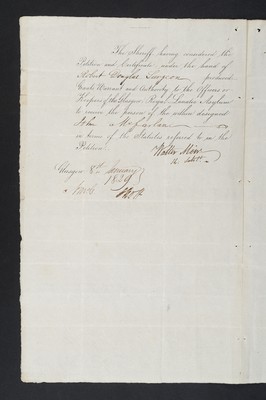 The Sheriff having considered the
Petition and Certificate under the hand of
Robert Douglas Surgeon, grants
Warrant and Authority to the Officer or
Keeper of the Glasgow Royal Lunatic Asylum
to receive the person of the within designed
John McFarlan
in terms of the Statutes referred to in the
Petition.
Walter Moir
Glasgow 8th January
1839